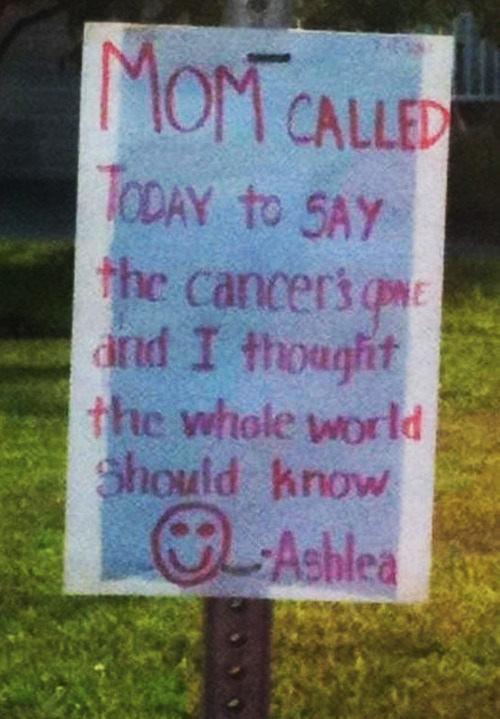 MOM CALLED
TODAY to SAY
the cancer's gONE
and I thought
the whole world
should know
-Ashlea